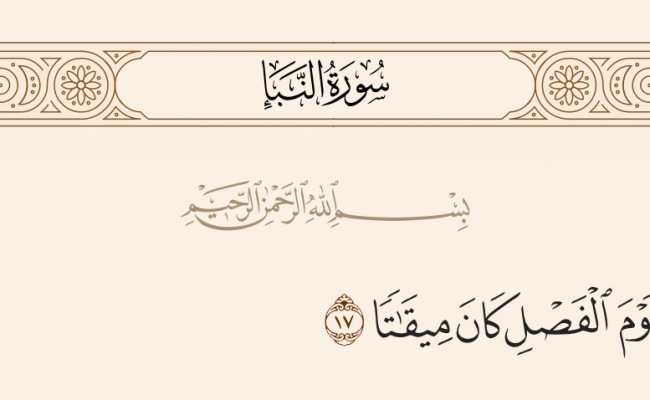 سُورَةُ النَّبَإِ
بِسْمِ ٱللَّهِ ٱلرَّحْمَٰنِ ٱلرَّحِيمِ
وْمَ ٱلْفَصْلِ كَانَ مِيقَـٰتًا ١٧